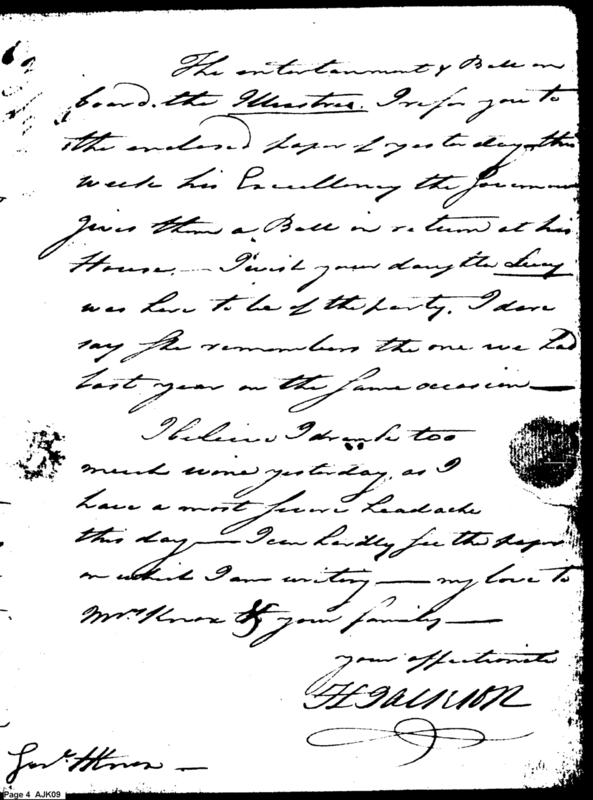 The entertainment & Ball on
board the Illustrea. I refer you to
the enclosed paper of yesterday—this
week his Excellency the Governour
gives them a Ball in return at his
House.— I wish your daughter Lucy
was here to be of the party. I dare
say She remembers the one we had
last year on the same occasion—
I believe I drank too
much wine yesterday, as I
have a most severe headache
this day— I can hardly see the paper
on which I am writing— my love to
Mrs Knox & your family—
your affectionate
H Jackson
Genl. H Knox —
Page 4 AJK09